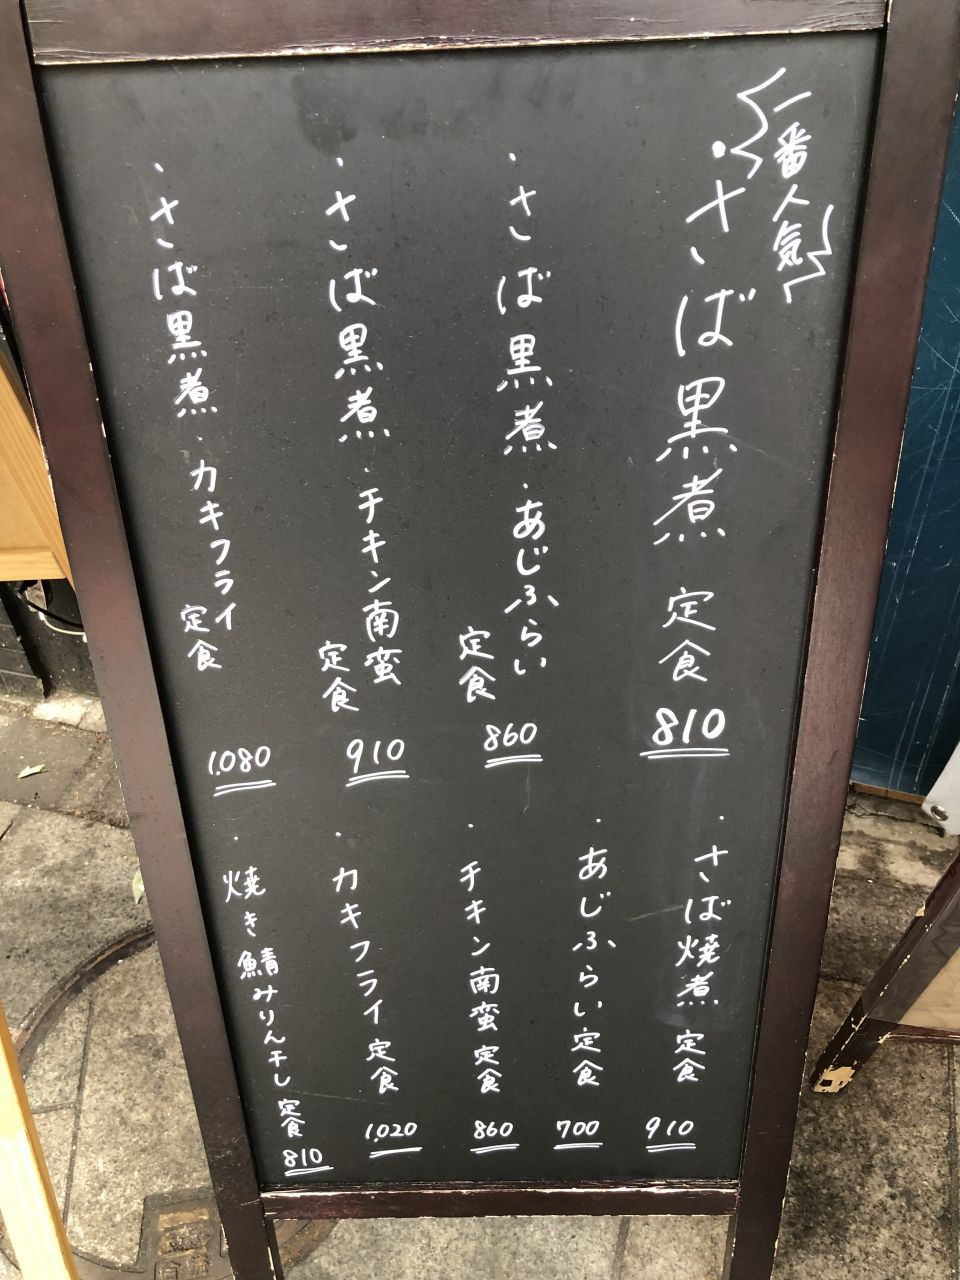 一番人気
・さば黒煮 定食 810
・さば黒煮・あじふらい 定食 860
・さば黒煮・チキン南蛮 定食 910
・さば黒煮・カキフライ 定食 1,080
・さば焼煮 定食 910
・あじふらい定食 700
・チキン南蛮 定食 860
・カキフライ 定食 1,020
・焼き鯖みりん干し 定食 810